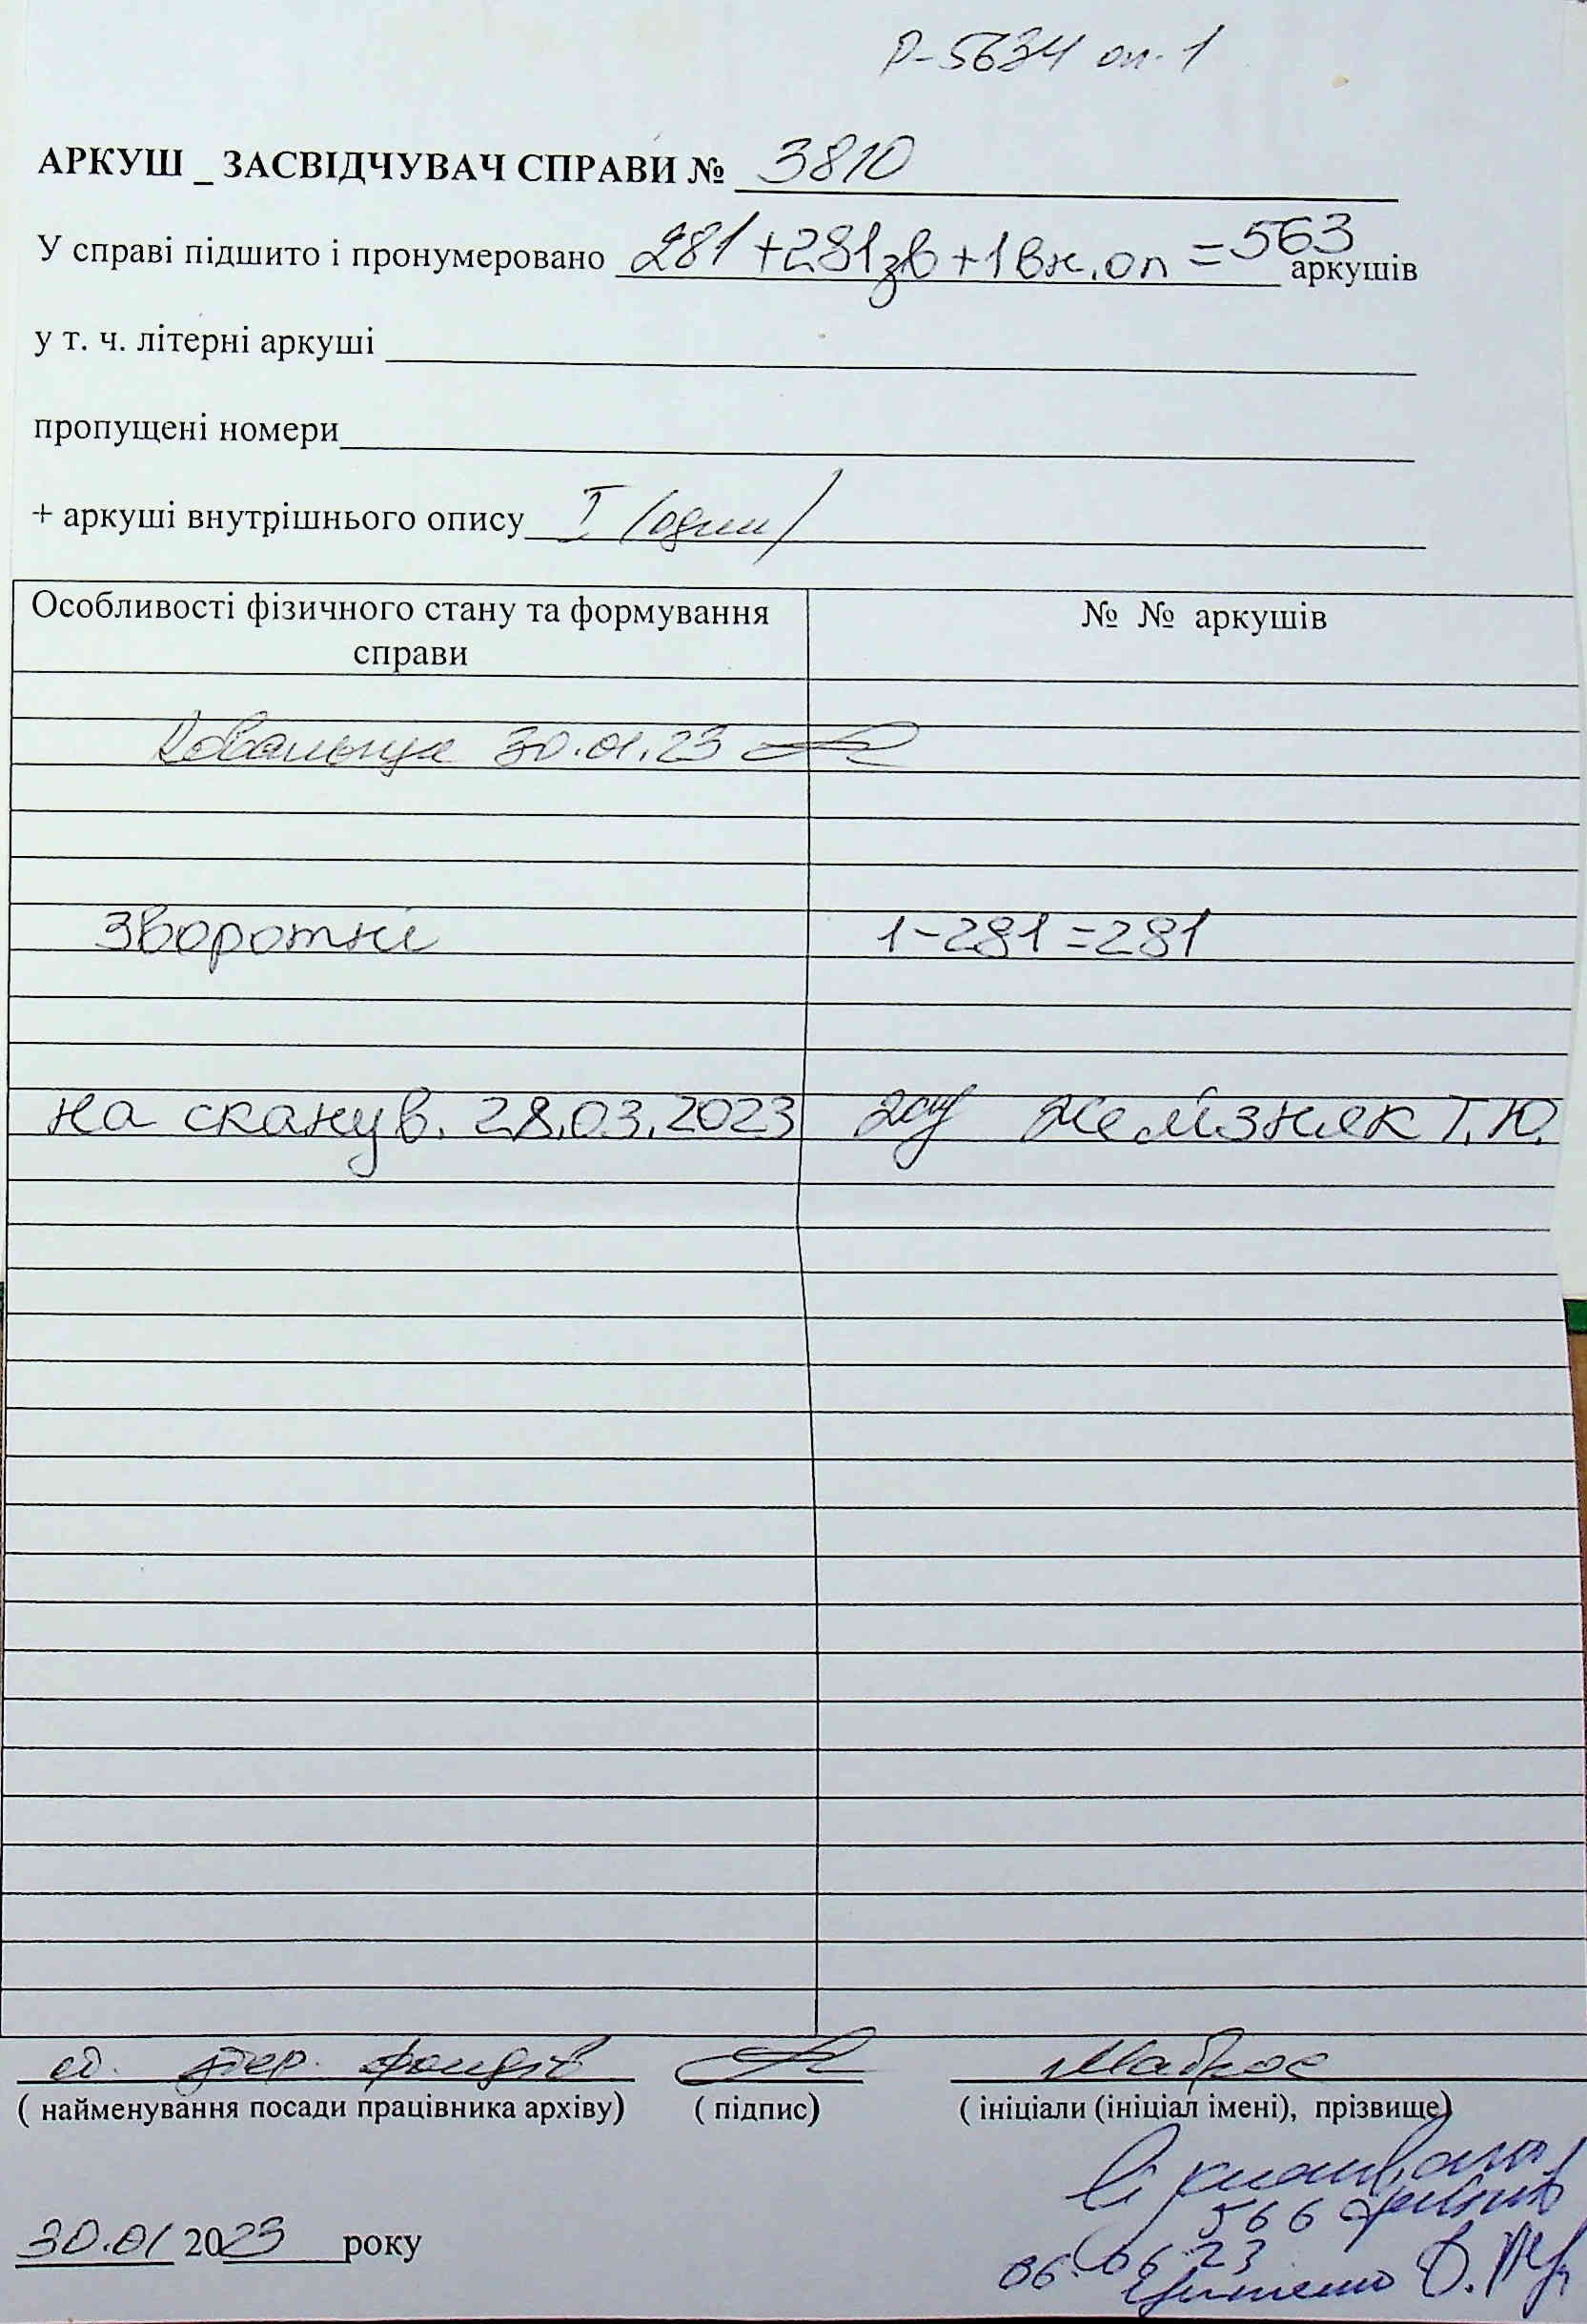 Р-5634 оп. 1
АРКУШ _ ЗАСВІДЧУВАЧ СПРАВИ № 3810
У справі підшито і пронумеровано 281+281зв+1вн.оп = 563 аркушів
у т. ч. літерні аркуші
пропущені номери
+ аркуші внутрішнього опису I /один/
Особливості фізичного стану та формування справи
№ № аркушів
30.01.23
Зворотні 1-281=281
на сканув. 28.03.2023 Желізняк Т.Ю.
фондів
( найменування посади працівника архіву) ( підпис) ( ініціали (ініціал імені), прізвище)
566
30.01 2023 року
06.06.23